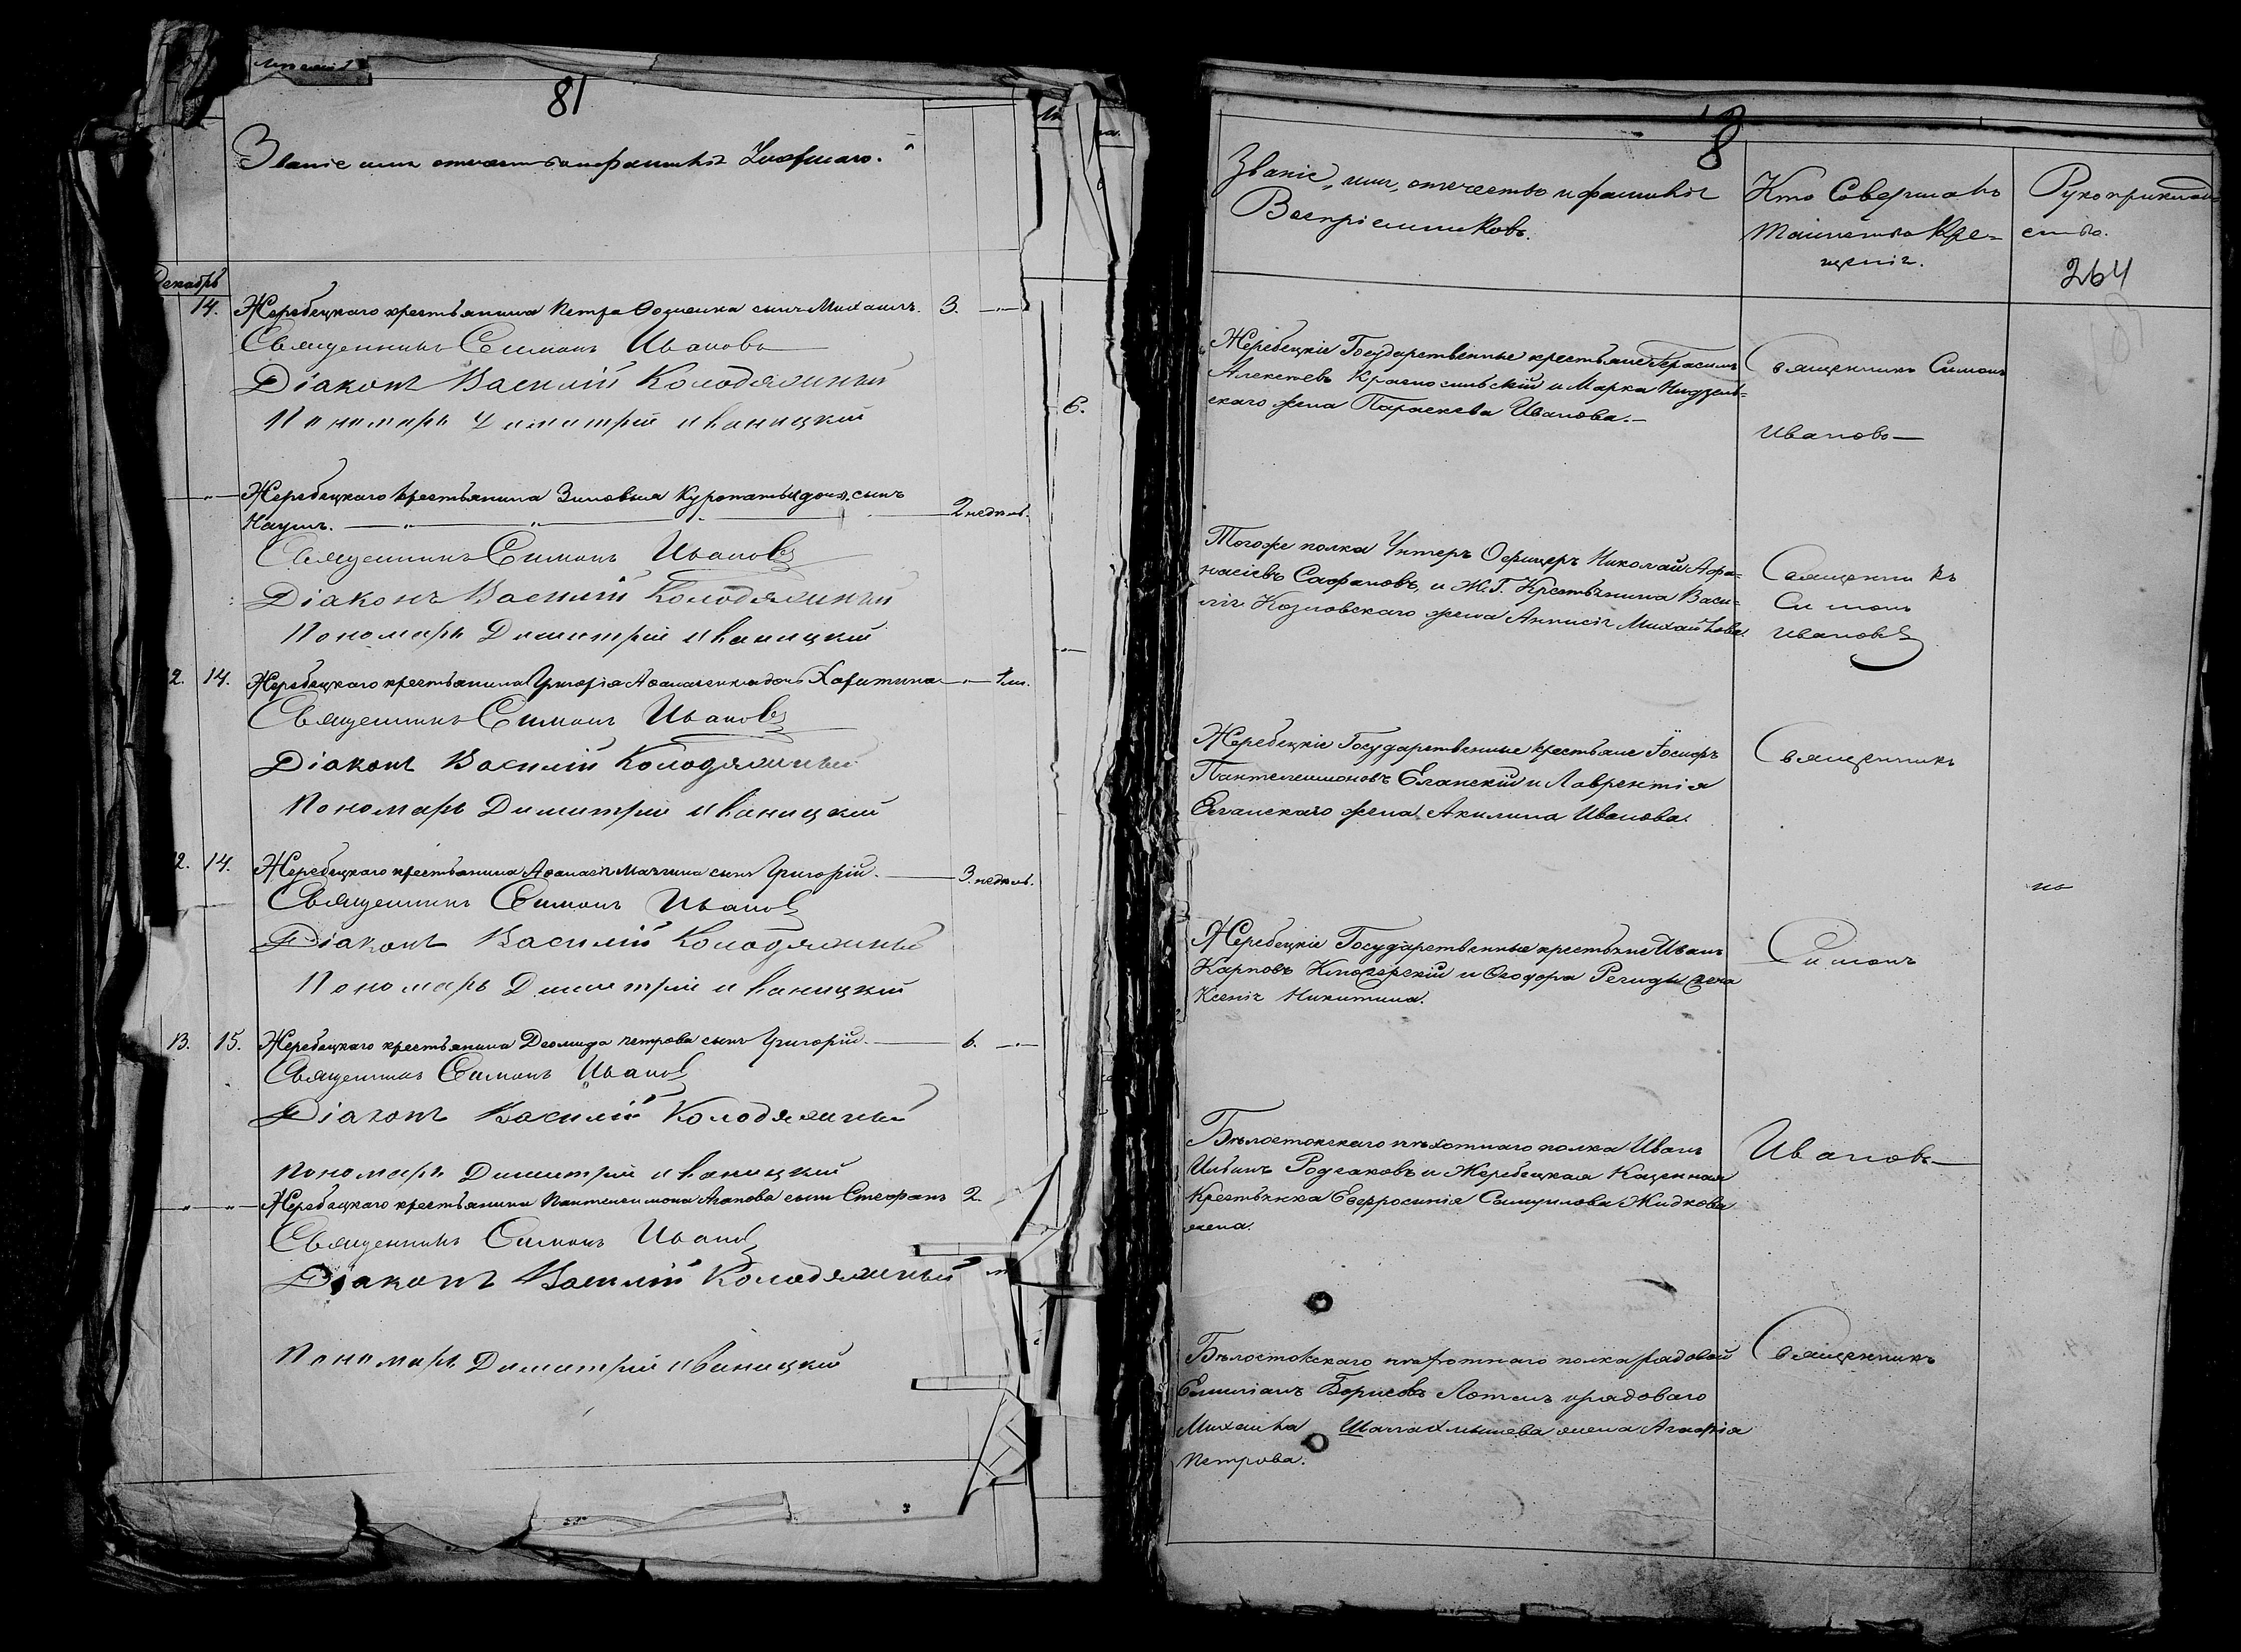 81
Званіе имя отчество и фамилія Умершаго.
Декабрь
14. Жеребецкаго крестьянина Петра сынъ Михаилъ. 3.
Священникъ Симонъ Ивановъ
Діаконъ Василій Колодяжный
Пономарь Димитрій Иваницкій
Жеребецкаго крестьянина Зиновія сынъ
Наумъ. 2 недѣль.
Священникъ Симонъ Ивановъ
Діаконъ Василій Колодяжный
Пономарь Димитрій Иваницкій
2. 14. Жеребецкаго крестьянина Григорія дочь Харитина 1 м.
Священникъ Симонъ Ивановъ
Діаконъ Василій Колодяжный
Пономарь Димитрій Иваницкій
2. 14. Жеребецкаго крестьянина сынъ Григорій. 3. недѣль.
Священникъ Симонъ Ивановъ
Діаконъ Василій Колодяжный
Пономарь Димитрій Иваницкій
13. 15. Жеребецкаго крестьянина Деомида Петрова сынъ Григорій 6.
Священникъ Симонъ Ивановъ
Діаконъ Василій Колодяжный
Пономарь Димитрій Иваницкій
Жеребецкаго крестьянина Пантелеимона Агапова сынъ Стефанъ 2.
Священникъ Симонъ Ивановъ
Діаконъ Василій Колодяжный
Пономарь Димитрій Иваницкій
6.
8
Званіе, имя, отечество и фамилія
Воспріемниковъ.
Кто Совершалъ
таинство Кре-
щенія.
Рукоприклад-
ство.
264
Жеребецкіе Государственные крестьяне Герасимъ
Алексѣевъ и Марка
жена Параскева Иванова.
Священникъ Симонъ
Ивановъ
Тогоже полка Унтеръ Офицеръ Николай Афа-
насіевъ Сафоновъ, и Ж. Г. Крестьянина Васи-
лія Козловскаго жена Михайлова
Священникъ
Симонъ
Ивановъ
Жеребецкіе Государственные крестьяне Іосифъ
Пантелеимоновъ Еланскій и Лаврентія
Еланскаго жена Акилина Иванова.
Священникъ
Жеребецкіе Государственные крестьяне Иванъ
Карповъ и Ѳеодора жена
Ксенія Никитина.
Симонъ
Бѣлостокскаго пѣхотнаго полка Иванъ
Ильинъ и Жеребецкая Казенная
Крестьянка Евфросинія Самуилова Жидкова
жена.
Ивановъ
Бѣлостокскаго пѣхотнаго полка рядовой
Емиліанъ Борисовъ и рядоваго
Михаила жена Агафія
Петрова.
Священникъ